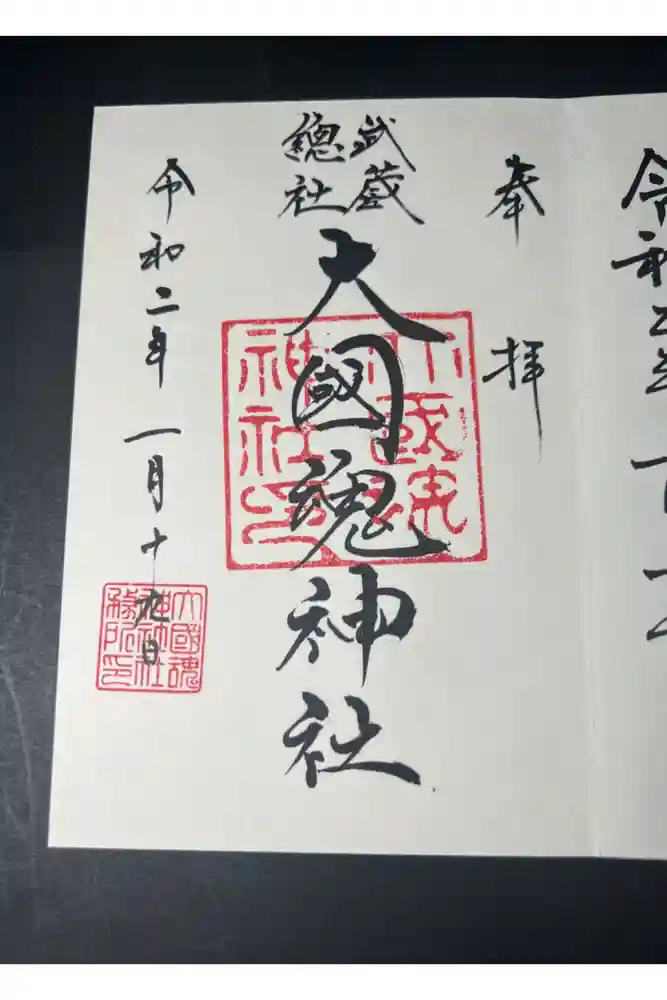 奉拝
武蔵
總社
大國魂神社
大國魂
神社印
令和二年一月十九日
大國魂
神社社
務所印
令和